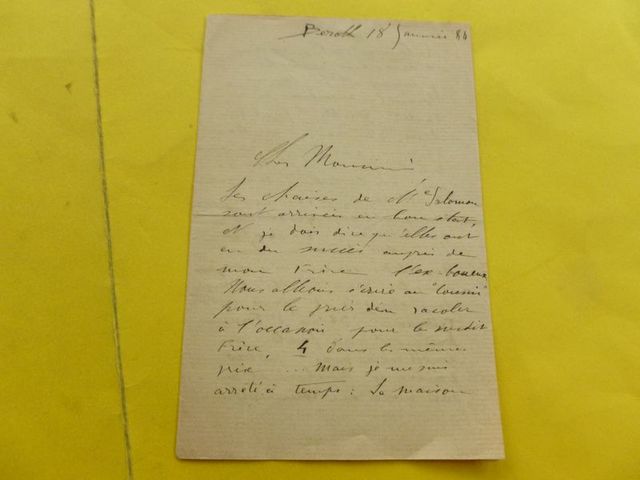 18 Janvier 84
Cher Monsieur
Les chaises de Mr Salomon
sont arrivées en bon état,
et je dois dire qu'elles ont
eu du succès auprès de
mon frère l'ex-
Nous allions écrire au "Cousin"
pour le prier d'en racoler
à l'occasion pour le susdit
frère, 4 dans le même
prix ... Mais je me suis
arrêté à temps : La maison